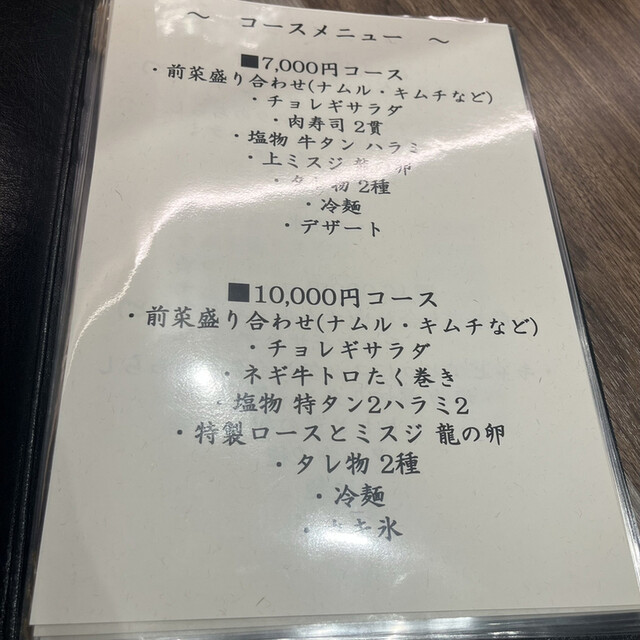 ～ コースメニュー ～
■7,000円コース
・前菜盛り合わせ(ナムル・キムチなど)
・チョレギサラダ
・肉寿司 2貫
・塩物 牛タン ハラミ
・上ミスジ 龍の卵
・タレ物 2種
・冷麺
・デザート
■10,000円コース
・前菜盛り合わせ(ナムル・キムチなど)
・チョレギサラダ
・ネギ牛トロたく巻き
・塩物 特タン2ハラミ2
・特製ロースとミスジ 龍の卵
・タレ物 2種
・冷麺
・かき氷